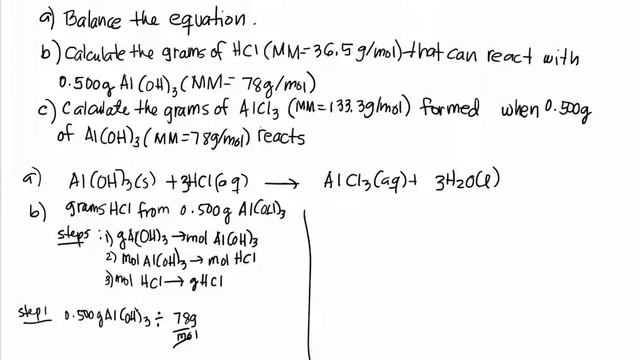 a) Balance the equation.
b) Calculate the grams of HCl (MM=36.5g/mol) that can react with
0.500g Al(OH)3 (MM= 78g/mol)
c) Calculate the grams of AlCl3 (MM=133.3g/mol) formed when 0.500g
of Al(OH)3 (MM=78g/mol) reacts
a) Al(OH)3(s) + 3HCl(aq) → AlCl3(aq) + 3H2O(l)
b) grams HCl from 0.500g Al(OH)3
steps: 1) gAl(OH)3 → mol Al(OH)3
2) mol Al(OH)3 → mol HCl
3) mol HCl → gHCl
step1 0.500gAl(OH)3 ÷ 78g
mol